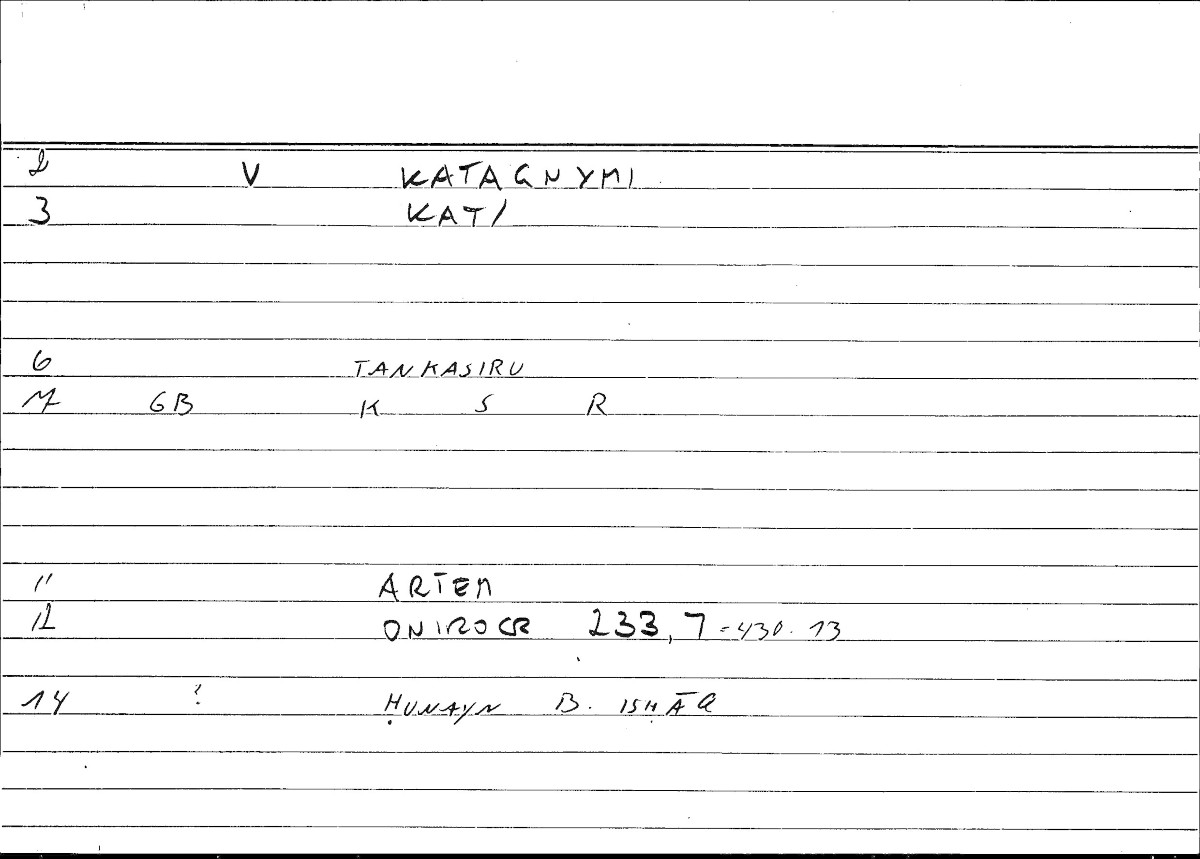 2 V KATAGNYMI
3 KAT/
6 TANKASIRU
7 GB K S R
11 ARTEM
12 ONIROCR 233,7 = 430.13
14 ? ḤUNAYN B. ISḤĀQ